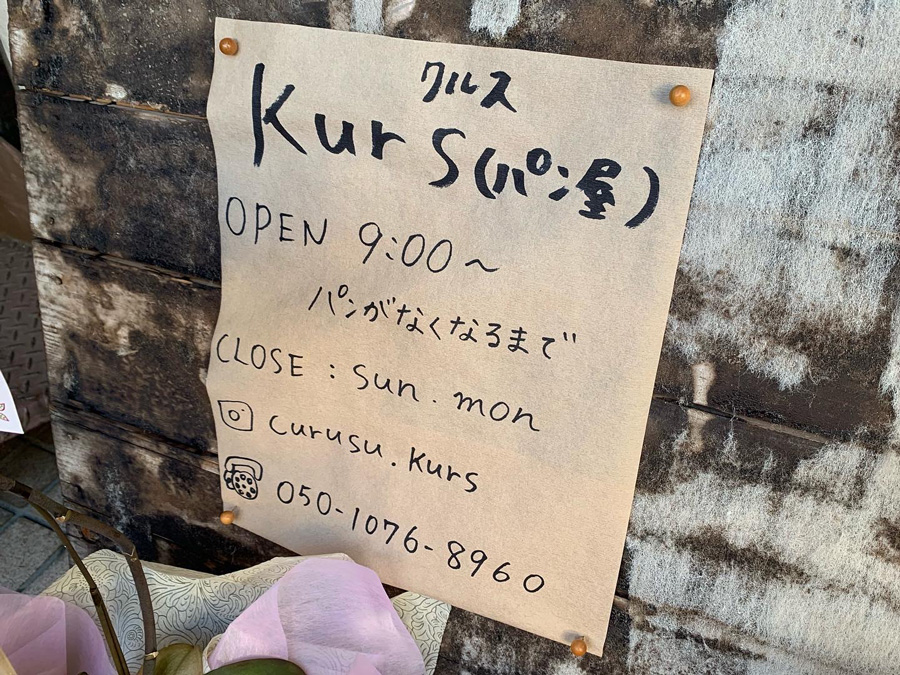 クルス
Kurs(パン屋)
OPEN 9:00～
パンがなくなるまで
CLOSE : sun. mon
curusu.kurs
050-1076-8960